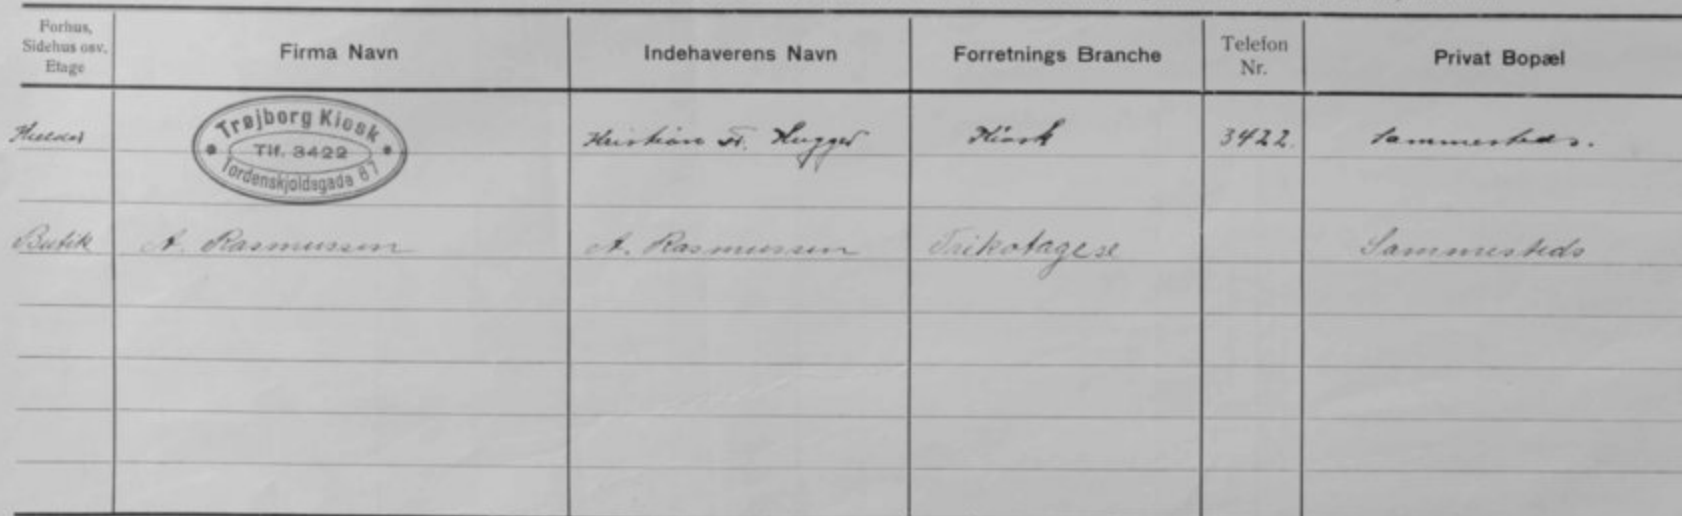 Forhus,
Sidehus osv.
Etage
Firma Navn
Indehaverens Navn
Forretnings Branche
Telefon
Nr.
Privat Bopæl
Trøjborg Kiosk
Tlf. 3422
Tordenskjoldsgade 67
Kristian Fr. Hugger
Kiosk
3422.
Sammesteds.
Butik
A. Rasmussen
A. Rasmussen
Trikotage
Sammesteds